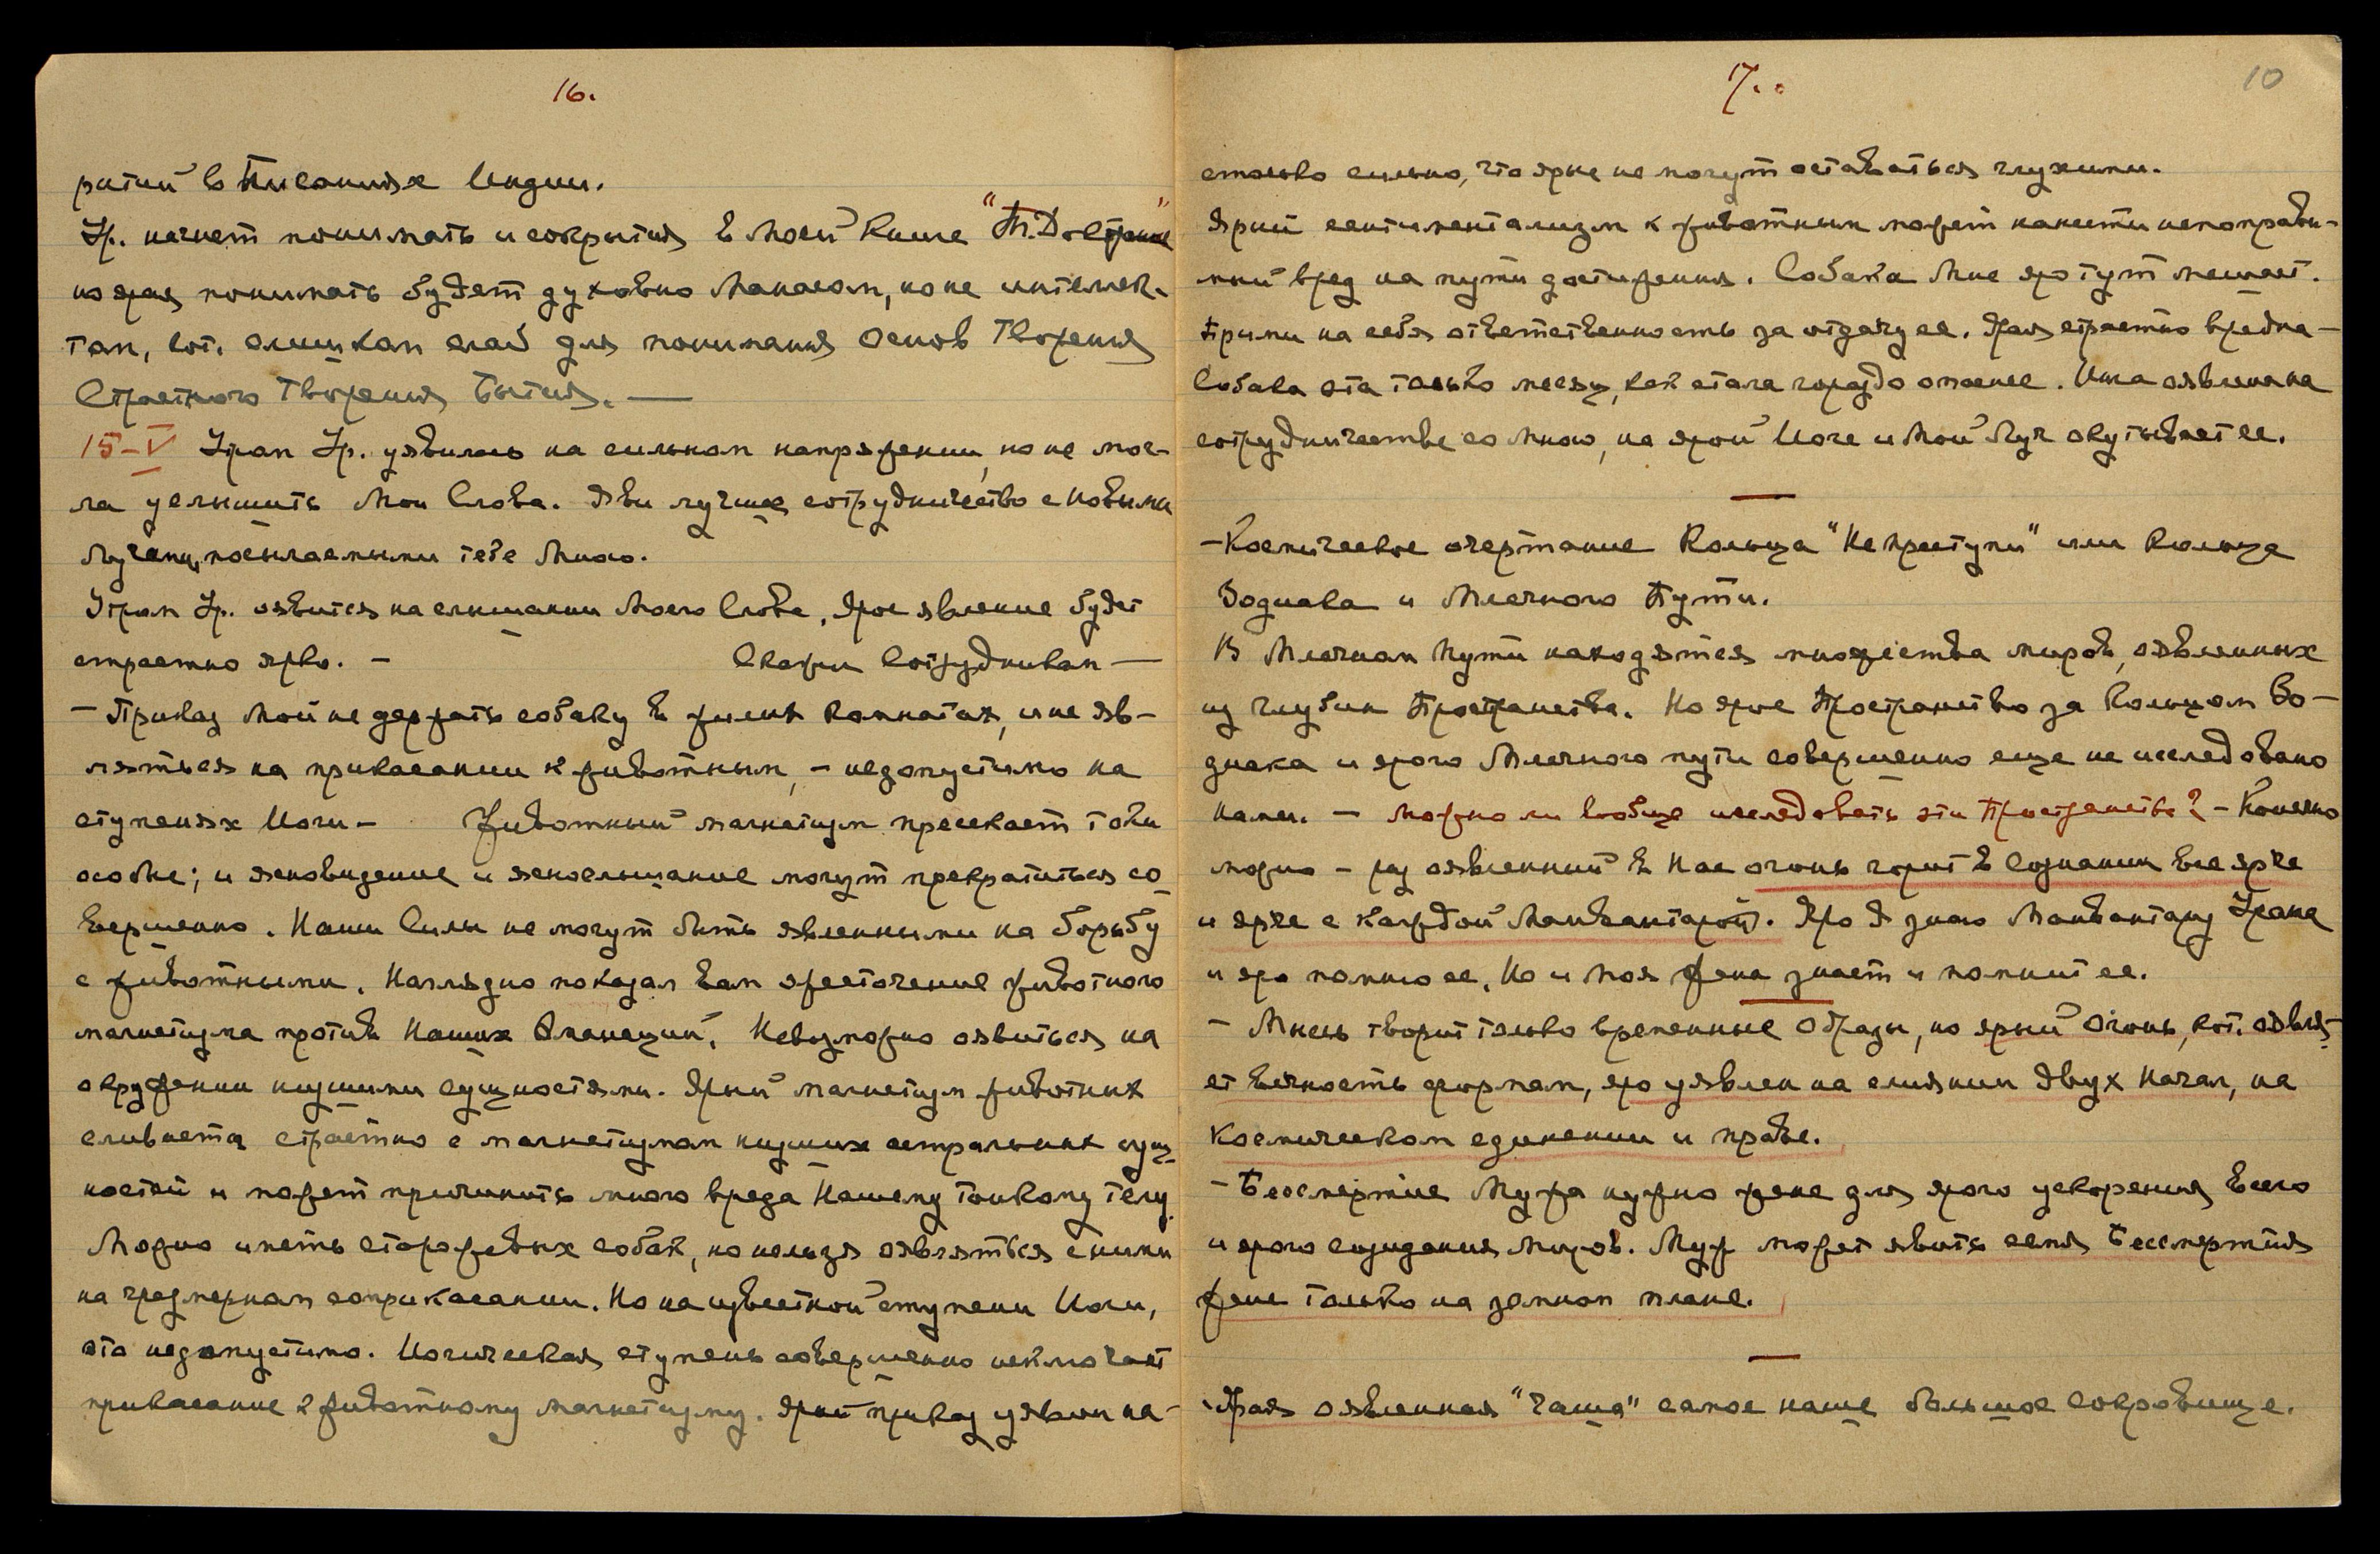 16.
рытий в Писаниях Индии.
Ур. начнет понимать и сокрытия в Моей книге "Т. Доктрине"
но яро понимать будет духовно Манасом, но не интеллек-
том, кот. слишком слаб для понимания основ Творения
Страстного Творения Бытия. —
15-V Утром Ур. уявилась на сильном напряжении, но не мог-
ла услышать Мои Слова. Яви лучше сотрудничество с новыми
Лучами, посылаемыми тебе Мною.
Утром Ур. оявится на слышании Моего Слова. Ярое явление будет
страстно ярко. — Скажи Сотрудникам —
— Приказ Мой не держать собаку в жилых комнатах, и не яв-
ляться на прикасании к животным, — недопустимо на
ступенях Йоги — Животный магнетизм пресекает токи
особые; и ясновидение и яснослышание могут прекратиться со-
вершенно. Наши Силы не могут быть явленными на борьбу
с животными. Наглядно показал вам ожесточение животного
магнетизма против Наших Эманаций. Невозможно оявиться на
окружении низшими сущностями. Ярый магнетизм животных
сливается страстно с магнетизмом низших астральных сущ-
ностей и может причинить много вреда Нашему тонкому телу.
Можно иметь сторожевых собак, но нельзя оявляться с ними
на чрезмерном соприкасании. Но на известной ступени Йоги,
это недопустимо. Йогическая ступень совершенно исключает
прикасание к животному магнетизму. Ярый приказ уявлен на-
17.
10
столько сильно, что ярые не могут оставаться глухими.
Ярый сентиментализм к животным может нанести непоправи-
мый вред на пути достижения. Собака Мне яро тут мешает.
Прими на себя ответственность за отдачу ее. Яро страстно вредна —
Собака эта только месяц, как стала гораздо опаснее. Ина оявлена на
сотрудничестве со Мною, на ярой Йоге и Мой Луч окутывает ее.
—
— Космическое очертание Кольца "Не преступи" или Кольца
Зодиака и Млечного Пути.
В Млечном Пути находятся множества миров, оявленных
из глубин Пространства. Но ярое Пространство за Кольцом Зо-
диака и ярого Млечного пути совершенно еще не исследовано
нами. — Можно ли вообще исследовать эти Пространства? — Конечно
можно — раз оявленный в Нас огонь горит в Сознании все ярче
и ярче с каждой Манвантарой. Яро Я знаю Манвантару Урана
и яро помню ее. Но и Моя жена знает и помнит ее.
— Мысль творит только временные образы, но ярый Огонь, кот. оявля-
ет вечность формам, яро уявлен на слиянии двух Начал, на
космическом единении и праве.
— Бессмертие Мужа нужно жене для ярого ускорения всего
и ярого созидания миров. Муж может явить семя Бессмертия
жене только на земном плане.
—
Ярая оявленная "Чаша" самое наше большое сокровище.